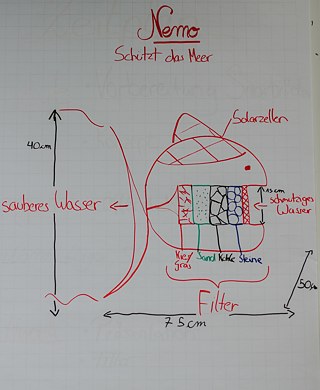 Nemo
Schützt das Meer
Solarzellen
40cm
15cm
sauberes Wasser
schmutziges
Wasser
Kies/
Gras
Sand
Kohle
Steine
Filter
75cm